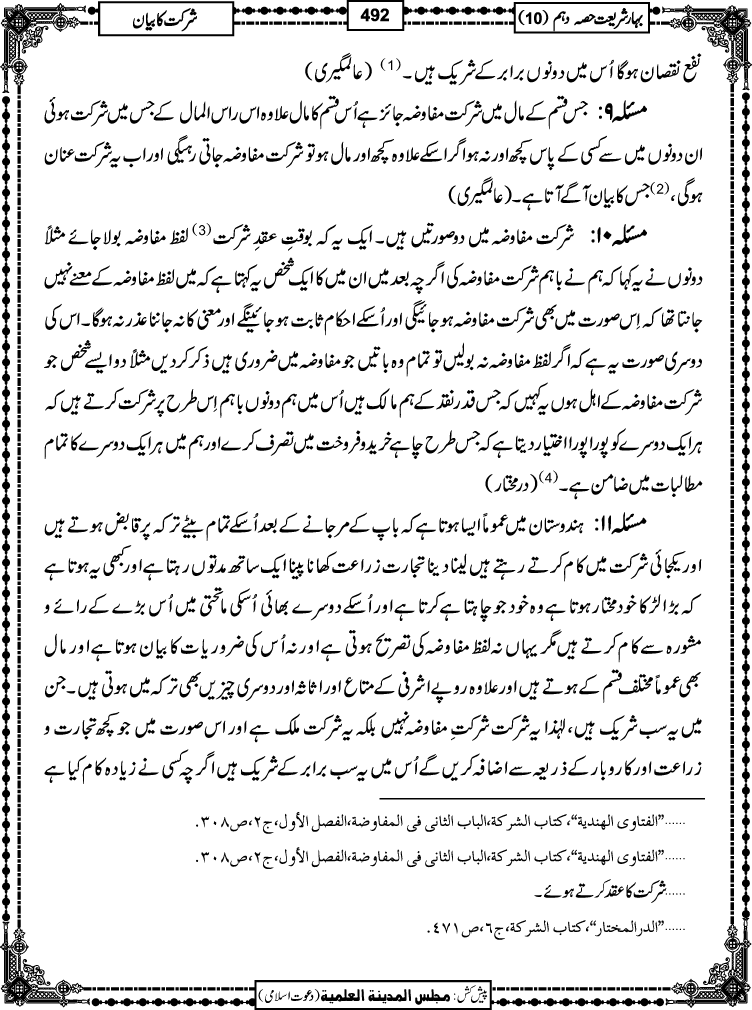 بہارِشریعت حصہ دہم (10)
492
شرکت کا بیان
نفع نقصان ہوگا اُس میں دونوں برابر کے شریک ہیں۔(1) (عالمگیری)
مسئلہ ۹: جس قسم کے مال میں شرکت مفاوضہ جائز ہے اُس قسم کا مال علاوہ اس راس المال کے جس میں شرکت ہوئی
ان دونوں میں سے کسی کے پاس کچھ اور نہ ہو اگر اسکے علاوہ کچھ اور مال ہو تو شرکت مفاوضہ جاتی رہیگی اور اب یہ شرکت عنان
ہوگی،(2) جس کا بیان آگے آتا ہے۔ (عالمگیری)
مسئلہ ۱۰: شرکت مفاوضہ میں دو صورتیں ہیں۔ ایک یہ کہ بوقتِ عقدِ شرکت(3) لفظ مفاوضہ بولا جائے مثلاً
دونوں نے یہ کہا کہ ہم نے باہم شرکت مفاوضہ کی اگرچہ بعد میں ان میں کا ایک شخص یہ کہتا ہے کہ میں لفظ مفاوضہ کے معنے نہیں
جانتا تھا کہ اِس صورت میں بھی شرکت مفاوضہ ہوجائیگی اور اُسکے احکام ثابت ہوجائینگے اور معنی کا نہ جاننا عذر نہ ہوگا۔ اس کی
دوسری صورت یہ ہے کہ اگر لفظ مفاوضہ نہ بولیں تو تمام وہ باتیں جو مفاوضہ میں ضروری ہیں ذکر کردیں مثلاً دو ایسے شخص جو
شرکت مفاوضہ کے اہل ہوں یہ کہیں کہ جس قدر نقد کے ہم مالک ہیں اُس میں ہم دونوں باہم اِس طرح پر شرکت کرتے ہیں کہ
ہر ایک دوسرے کو پورا پورا اختیار دیتا ہے کہ جس طرح چاہے خرید و فروخت میں تصرف کرے اور ہم میں ہر ایک دوسرے کا تمام
مطالبات میں ضامن ہے۔(4) (درمختار)
مسئلہ ۱۱: ہندوستان میں عموماً ایسا ہوتا ہے کہ باپ کے مرجانے کے بعد اُسکے تمام بیٹے ترکہ پر قابض ہوتے ہیں
اور یکجائی شرکت میں کام کرتے رہتے ہیں لینا دینا تجارت زراعت کھانا پینا ایک ساتھ مدتوں رہتا ہے اور کبھی یہ ہوتا ہے
کہ بڑا لڑکا خود مختار ہوتا ہے وہ خود جو چاہتا ہے کرتا ہے اور اُسکے دوسرے بھائی اُسکی ماتحتی میں اُس بڑے کے رائے و
مشورہ سے کام کرتے ہیں مگر یہاں نہ لفظ مفاوضہ کی تصریح ہوتی ہے اور نہ اُس کی ضروریات کا بیان ہوتا ہے اور مال
بھی عموماً مختلف قسم کے ہوتے ہیں اور علاوہ روپے اشرفی کے متاع اور اثاثہ اور دوسری چیزیں بھی ترکہ میں ہوتی ہیں۔ جن
میں یہ سب شریک ہیں، لہٰذا یہ شرکت شرکتِ مفاوضہ نہیں بلکہ یہ شرکت ملک ہے اور اس صورت میں جو کچھ تجارت و
زراعت اور کاروبار کے ذریعہ سے اضافہ کریں گے اُس میں یہ سب برابر کے شریک ہیں اگرچہ کسی نے زیادہ کام کیا ہے
......”الفتاوی الهندية“، کتاب الشركة،الباب الثانی فی المفاوضة،الفصل الأول،ج۲،ص۳۰۸.
......”الفتاوی الهندية“، کتاب الشركة،الباب الثانی فی المفاوضة،الفصل الأول،ج۲،ص۳۰۸.
......شرکت کا عقد کرتے ہوئے۔
......”الدرالمختار“، کتاب الشركة،ج۶،ص۴۷۱.
پیش کش: مجلس المدينة العلمية (دعوت اسلامی)